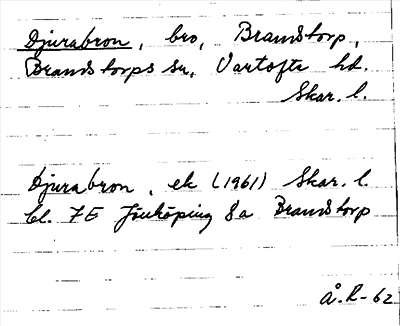 Djurabron, bro, Brandstorp,
Brandstorps sn, Vartofta hd.
Skar. l.
Djurabron, ek (1961) Skar. l.
bl. 7E Jönköping 8a Brandstorp
Å.R-62